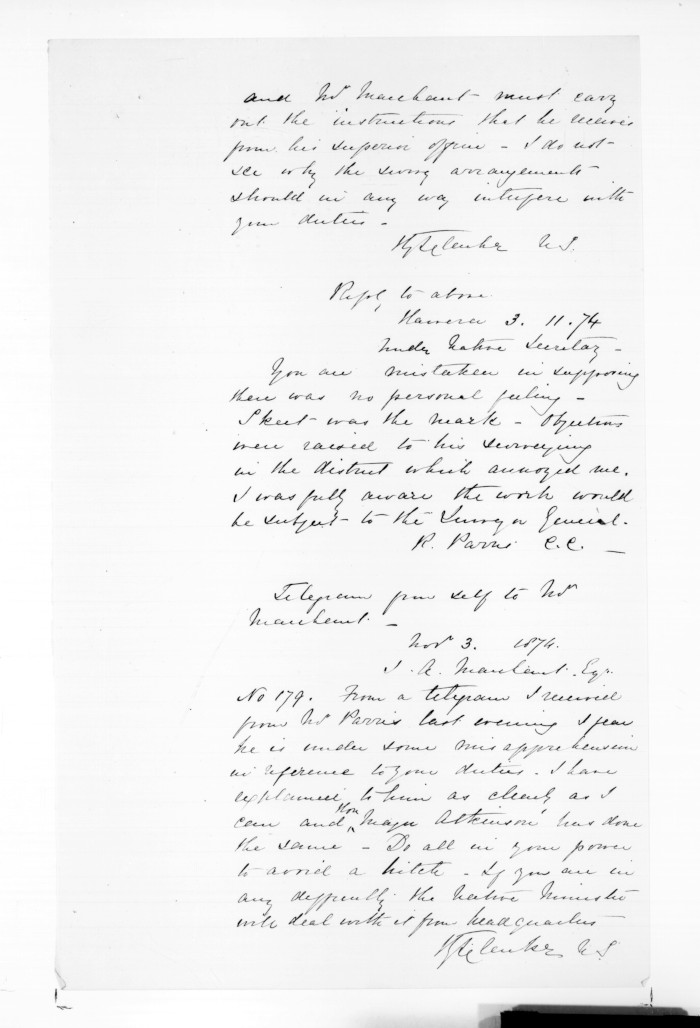 and Mr Marchant must carry
out the instructions that he receives
from his superior officer - I do not
see why the survey arrangements
should in any way interfere with
your duties -
H T Clarke U.S.
Reply to above
Hawera 3. 11. 74
Under Native Secretary -
You are mistaken in supposing
there was no personal feeling -
Skeet was the mark - Objections
were raised to his surveying
in the district which annoyed me.
I was fully aware the work would
be subject to the Surveyor General.
R. Parris C.C. -
Telegram from self to Mr
Marchant -
Novr 3. 1874.
J. A. Marchant. Esqr.
No 179. From a telegram I received
from Mr Parris last evening I fear
he is under some misapprehension
in reference to your duties. I have
explained to him as clearly as I
can and Hon Major Atkinson has done
the same - Do all in your power
to avoid a hitch - If you are in
any difficulty the Native Minister
will deal with it from headquarters
H T Clarke U.S